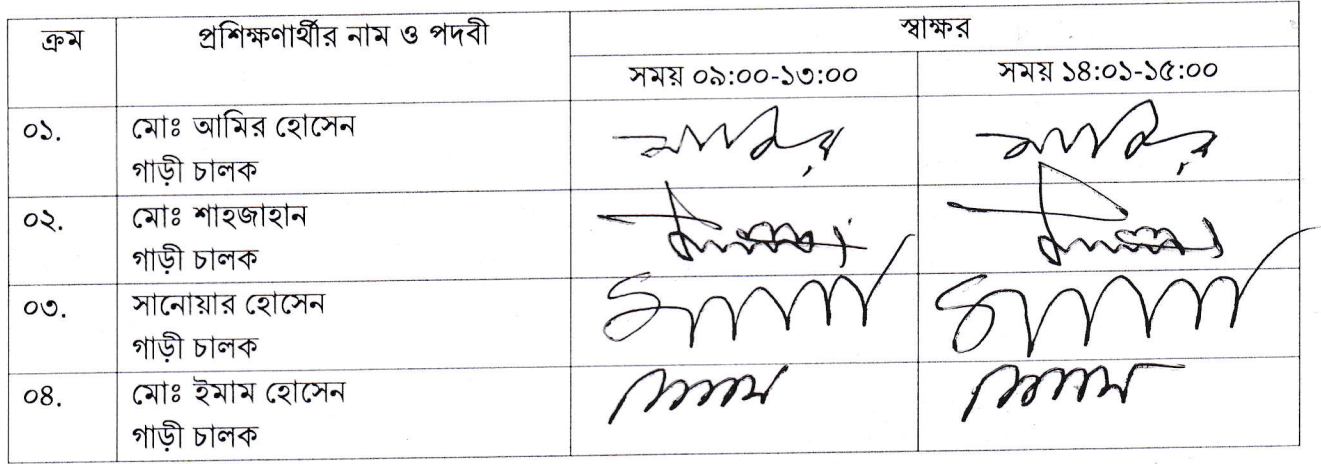 ক্রম প্রশিক্ষণার্থীর নাম ও পদবী স্বাক্ষর
সময় ০৯:০০-১৩:০০ সময় ১৪:০১-১৫:০০
০১. মোঃ আমির হোসেন
গাড়ী চালক
০২. মোঃ শাহজাহান
গাড়ী চালক
০৩. সানোয়ার হোসেন
গাড়ী চালক
০৪. মোঃ ইমাম হোসেন
গাড়ী চালক